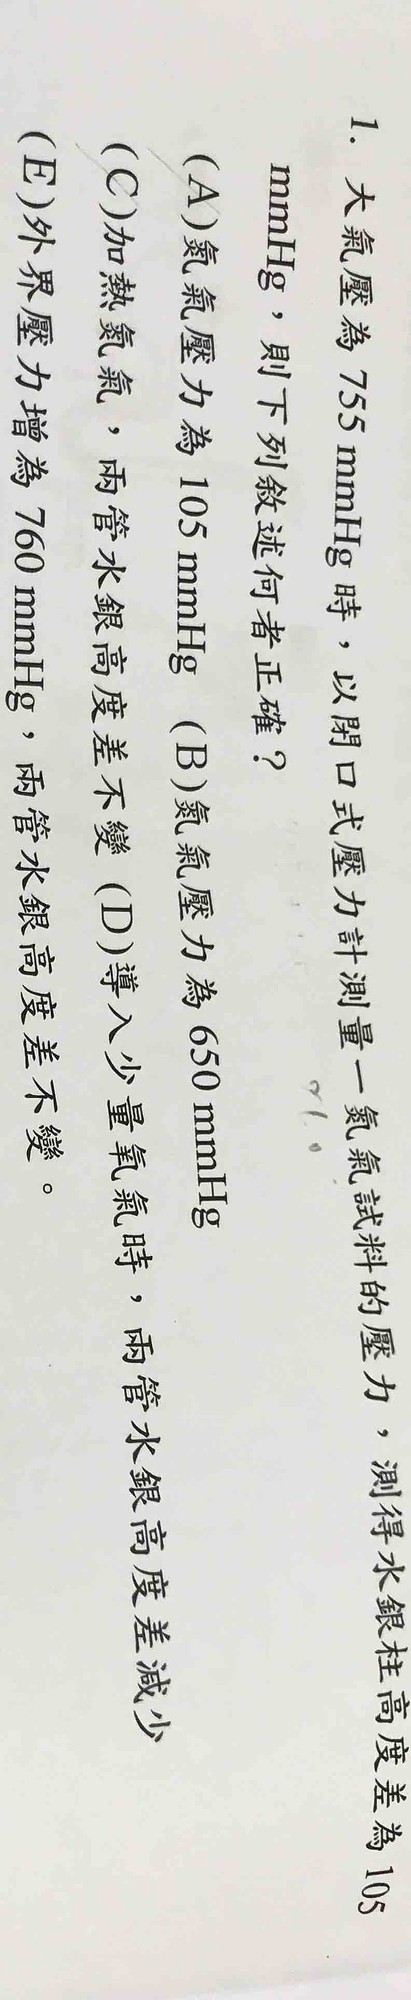 1. 大氣壓為 755 mmHg 時，以閉口式壓力計測量一氮氣試料的壓力，測得水銀柱高度差為 105
mmHg，則下列敘述何者正確？
(A)氮氣壓力為 105 mmHg (B)氮氣壓力為 650 mmHg
(C)加熱氮氣，兩管水銀高度差不變 (D)導入少量氧氣時，兩管水銀高度差減少
(E)外界壓力增為 760 mmHg，兩管水銀高度差不變。